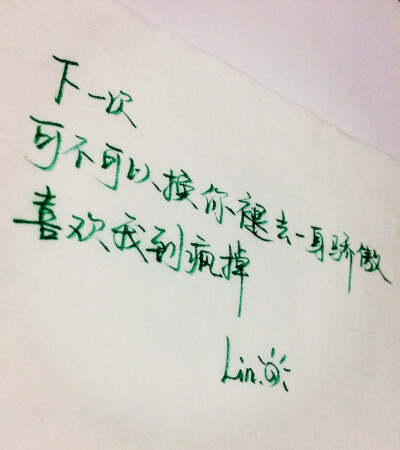 下一次
可不可以、换你褪去一身骄傲
喜欢我到疯掉
Lin.